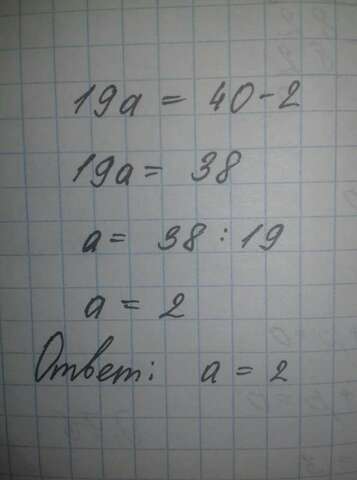 19a = 40 - 2
19a = 38
a = 38 : 19
a = 2
Ответ: a = 2